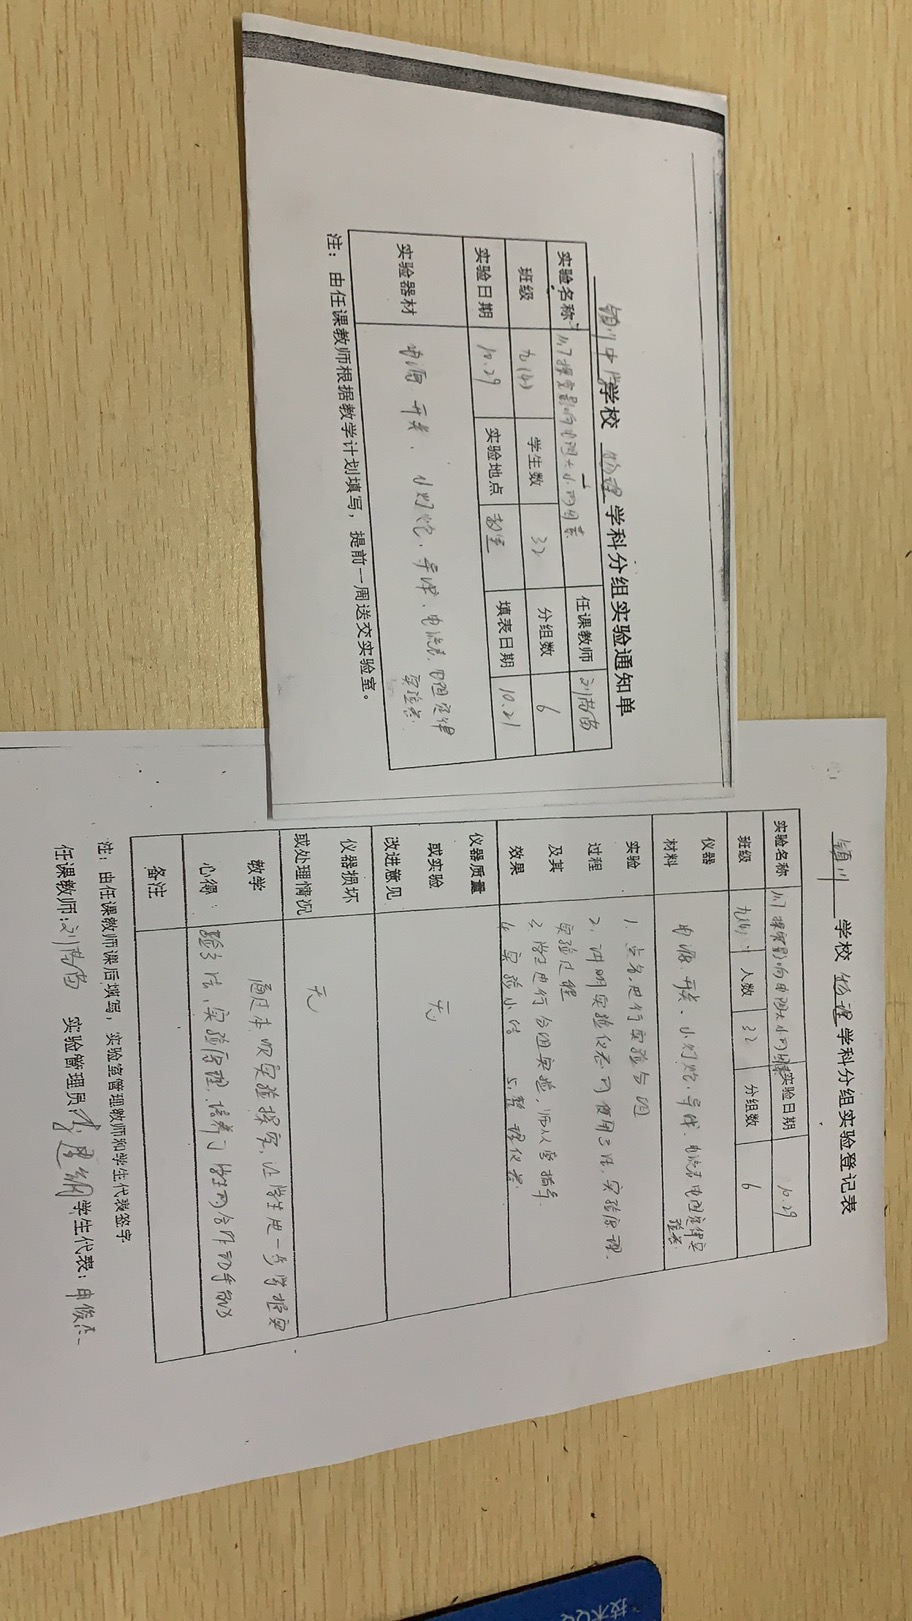 学校 物理 学科分组实验通知单
实验名称 探究影响电阻大小的因素 任课教师
班级 九(4) 学生数 32 分组数 6
实验日期 10.29 实验地点 教室 填表日期 10.21
实验器材 电源 开关、小灯炮、导线、电流表、电阻定律
实验器
注：由任课教师根据教学计划填写，提前一周送交实验室。
颍川 学校 物理 学科分组实验登记表
实验名称 探究影响电阻大小的因素 实验日期 10.29
班级 人数 32 分组数 6
仪器
材料
电源、开关、小灯炮、导线、电流表 电阻定律实
验器
实验
过程
及其
效果
1. 点名,进行实验分组
2. 讲明实验仪器的使用方法,实验原理.
实验过程
3. 学生进行分组实验,师从旁指导
4. 实验小结 5. 整理仪器.
仪器质量
或实验
改进意见
无
仪器损坏
或处理情况
无
教学
心得：
通过本次实验探究,让学生进一步掌握实
验方法,实验原理,培养了学生的合作动手能力
备注
注：由任课教师课后填写，实验室管理教师和学生代表签字
任课教师: 实验管理员: 学生代表: 申俊杰